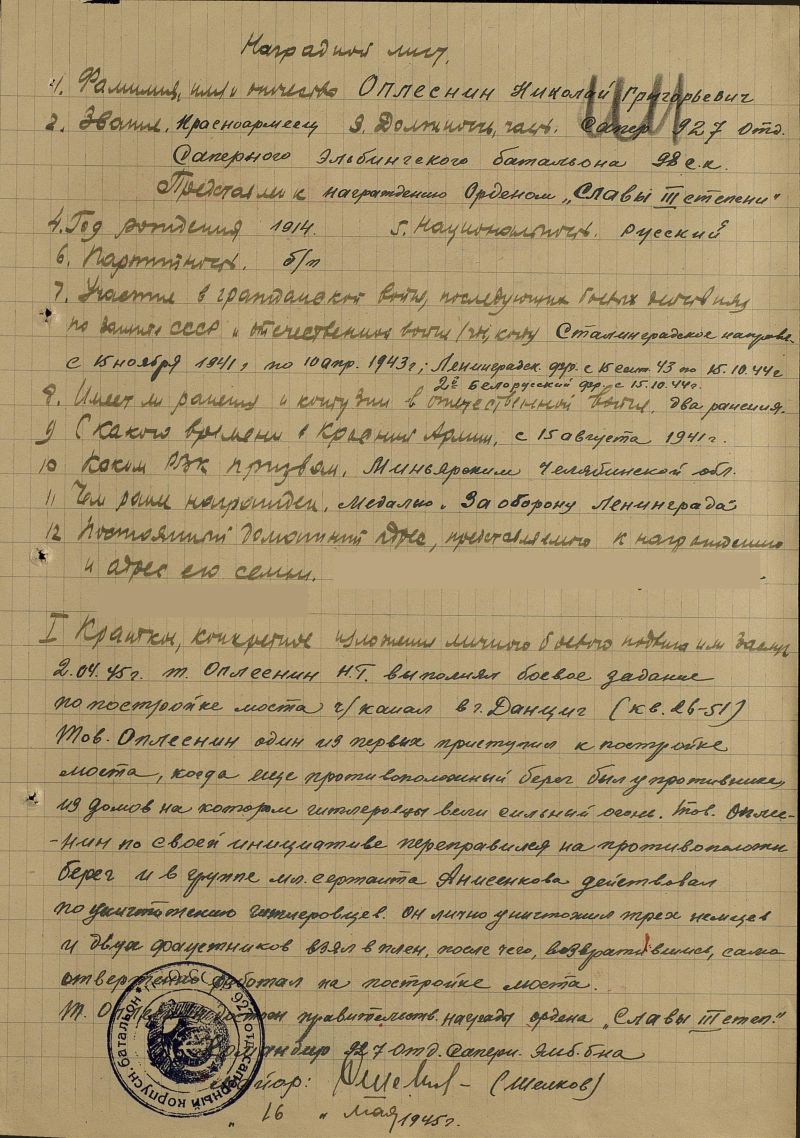 Наградной лист.
1. Фамилия, имя и отчество Оплеснин Николай Григорьевич
2. Звание, Красноармеец 3. Должность, часть. Сапер 927 отд.
Саперного Эльбингского батальона 98 с.к.
Представлен к награждению Орденом „Славы III степени"
4. Год рождения 1914. 5. Национальность. русский
6. Партийность. б/п
7. Участие в гражданской войне, последующих боевых действиях
по защите СССР и отечественной войне /где, когда Сталинградское направ.
с 15 ноября 1941г по 10 апр. 1943г; Ленинградск. фр. с 15 сент. 43 по 15.10.44г
2й Белорусский фр. с 15.10.44г.
8. Имеет ли ранения и контузии в отечественной войне, два ранения.
9 С какого времени в Красной Армии, с 15 августа 1941г.
10 Каким РВК призван, Миньярским Челябинской обл.
11 Чем ранее награжден, медалью „За оборону Ленинграда"
12 Постоянный домашний адрес, представляемого к награждению
и адрес его семьи.
I Краткое, конкретное изложение личного боевого подвига или заслуг
2.04.45г. т. Оплеснин Н.Г. выполнял боевое задание
по постройке моста ч/ канал в г. Данциг (кв. 26-51)
Тов. Оплеснин один из первых приступил к постройке
моста, когда еще противоположный берег был у противника,
из домов на котором гитлеровцы вели сильный огонь. Тов. Оплес-
-нин по своей инициативе переправился на противоположн
берег и в группе мл. сержанта Анисенкова действовал
по уничтожению гитлеровцев. Он лично уничтожил трех немцев
и двух фаустников взял в плен, после чего, возвратившись, само
отверженно работал на постройке моста.
Т. Оплеснин достоин правительств. награды ордена „Славы III степ."
Командир 927 отд. саперн. Эльб. б-на
майор: (Шелков)
„ 16 „ мая 1945г.
927 отд. саперный корпусн. батальон